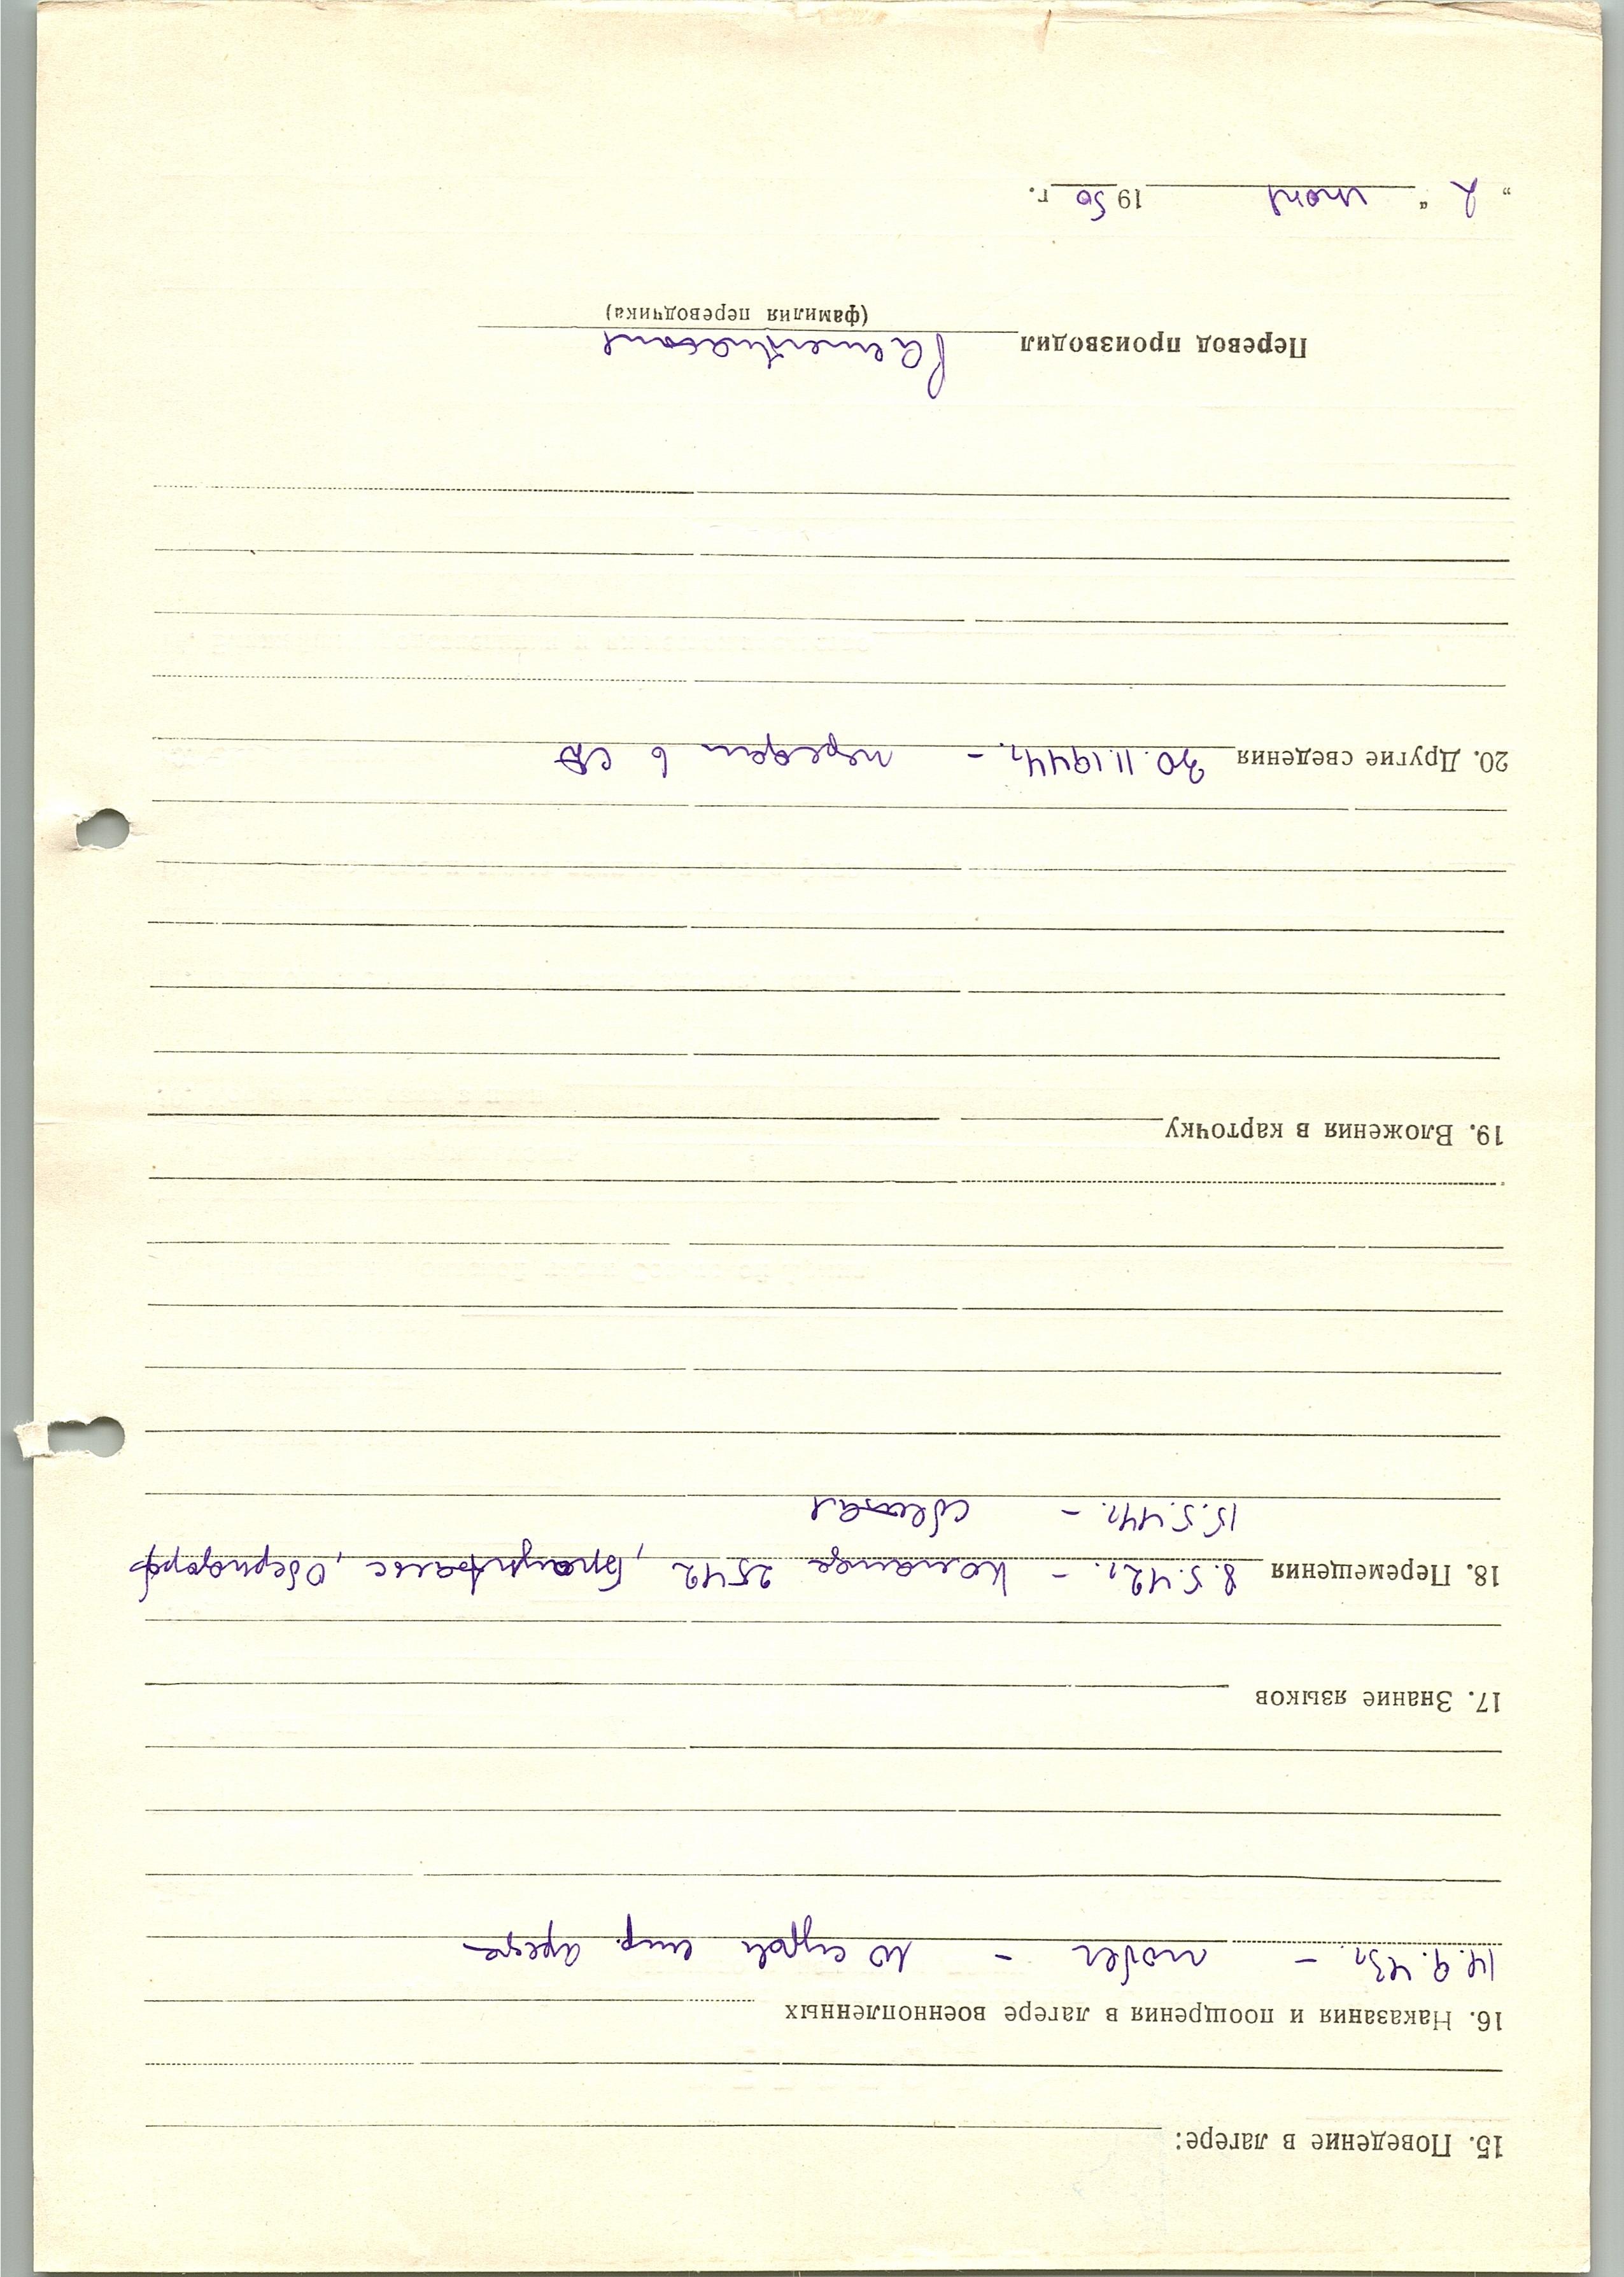 15. Поведение в лагере:
16. Наказания и поощрения в лагере военнопленных
14.9.43г. – побег – 10 суток стр. ареста
17. Знание языков
18. Перемещения 8.5.42г. – команда 2542, Браунфальс, Оберндорф
15.5.44г. – сбежал
19. Вложения в карточку
20. Другие сведения 30.11.1944г. – передан в СД
Перевод производил
(фамилия переводчика)
„ 2 “ июня 1950 г.